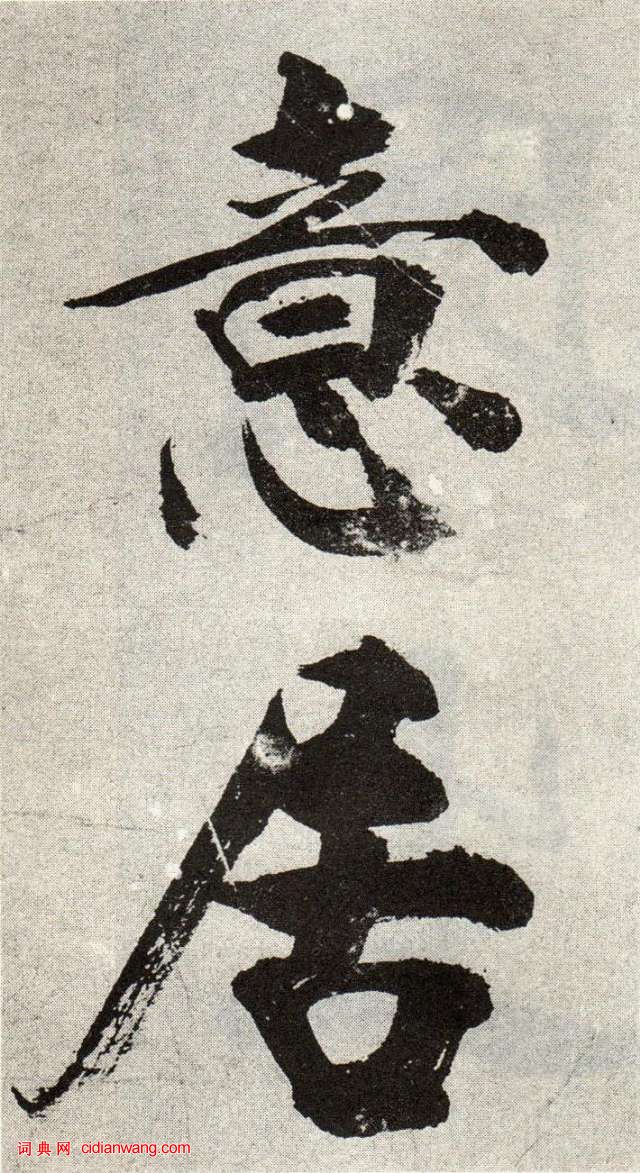 意
居
词典网 cidianwang.com